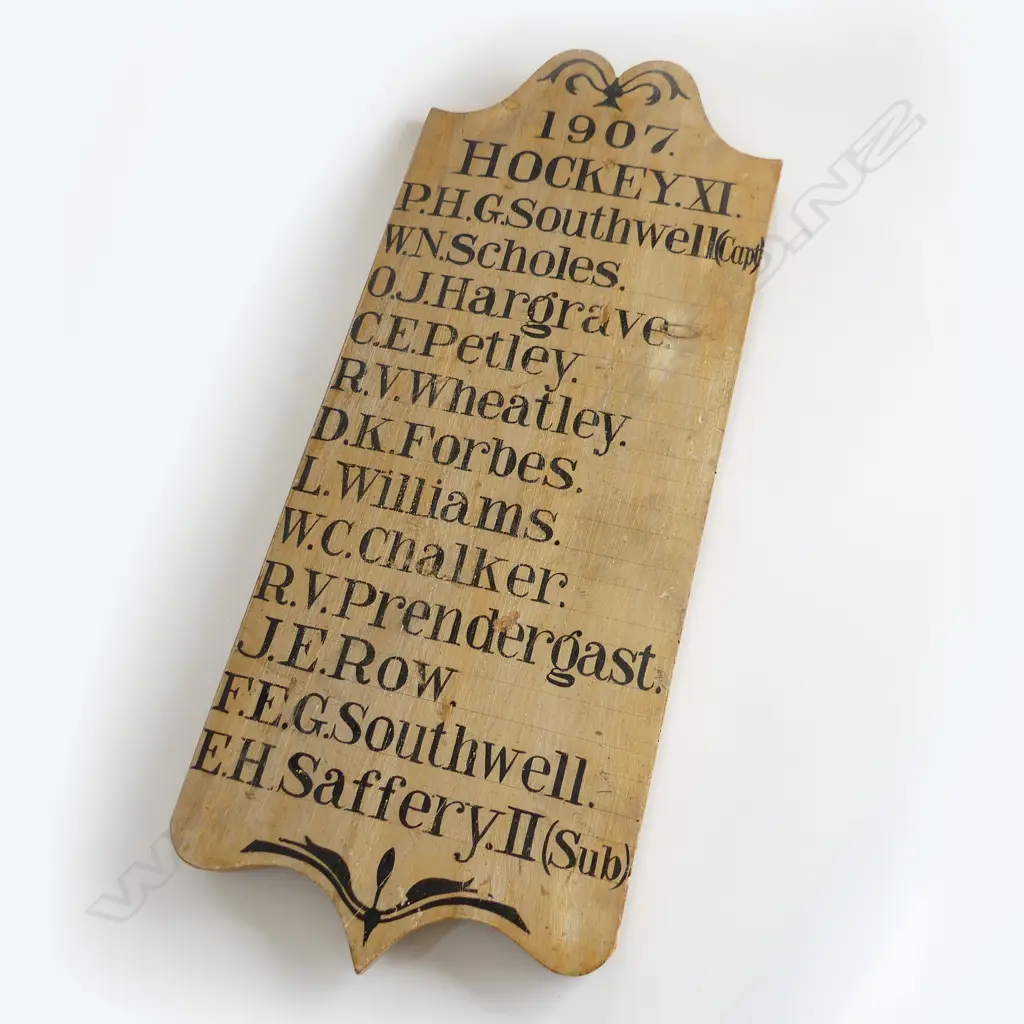 1907.
HOCKEY.XI.
P.H.G.Southwell(Capt)
W.N.Scholes.
O.J.Hargrave.
C.E.Petley.
R.V.Wheatley.
D.K.Forbes.
L.Williams.
W.C.Chalker.
R.V.Prendergast.
J.E.Row.
F.E.G.Southwell.
E.H.Saffery.II(Sub)